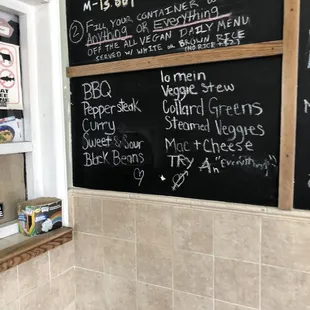 M-13.00
② Fill your container w
Anything or Everything
off the all vegan daily menu
served w/ white or brown rice
(no rice +$2)
BBQ
Pepper steak
Curry
Sweet & Sour
Black Beans
lo mein
Veggie stew
Collard Greens
Steamed Veggies
Mac + Cheese
Try An "everything"